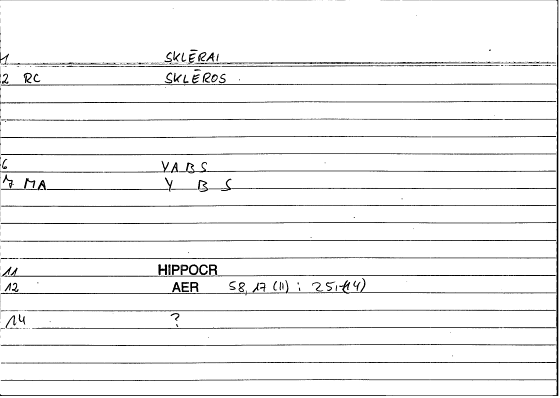 1 SKLĒRAI
2 RC SKLĒROS
6 YABS
7 MA Y B S
11 HIPPOCR
12 AER 58,17 (11) ; 25,(14)
14 ?